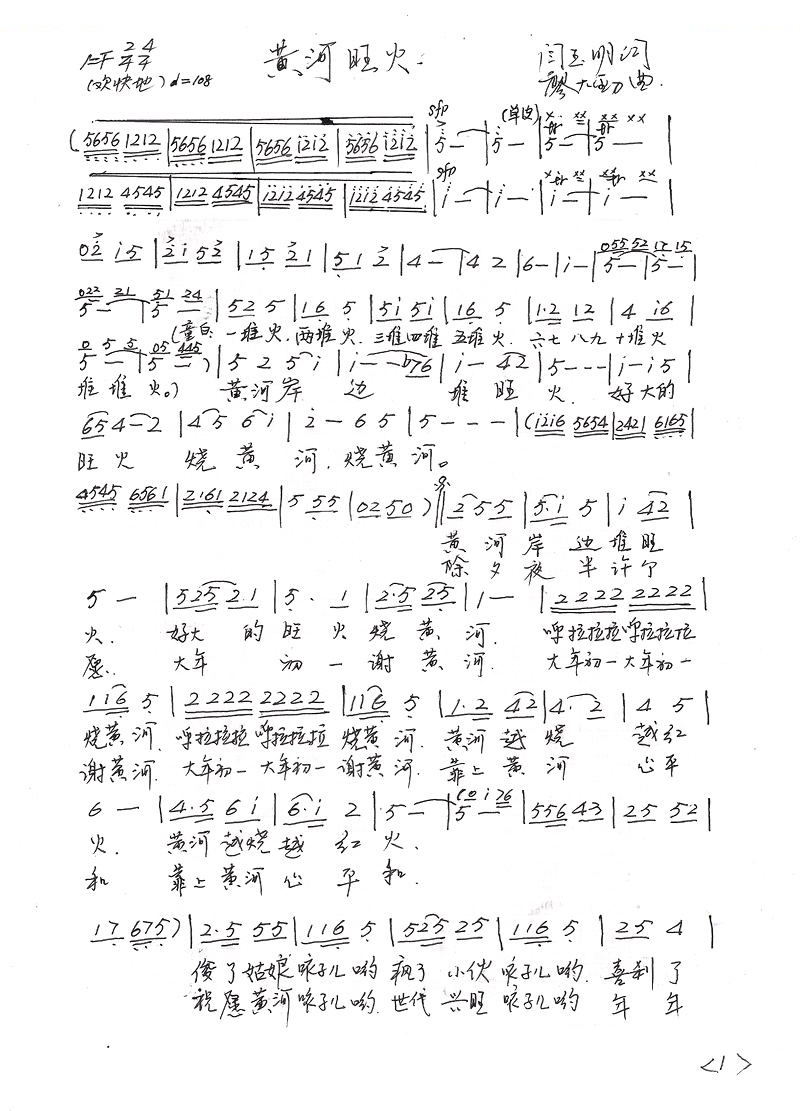 1=F 2/4 4/4 黄河旺火 闫玉明词
(欢快地) ♩=108 廖大五力曲
sfp (单白) x· xx xx xx
(5656 1212 | 5656 1212 | 5656 1212 | 5656 1212 | 5 — | 5 — | 5 — | 5 — |
sfp
1212 4545 | 1212 4545 | 1212 4545 | 1212 4545 | i — | i — | i — | i — |
02 i5 | 2i 52 | 15 21 | 51 2 | 4 — | 4 2 | 6 — | i — | 5 — | 5 — |
055 52 12 15
022 21 51 24
5 — | 5 — | 525 5 | 16 5 | 5i 5i | 16 5 | 1·2 12 | 4 i6 |
(童白: 一堆火, 两堆火, 三堆四堆 五堆火, 六七 八九 十堆火
0 5 5 05 445
5 — | 5 — ) | 5 2 5 i | i — — b76 | i — 42 | 5 - - - | i — i 5 |
堆堆火。) 黄河岸 边 堆旺 火. 好大的
65 4 — 2 | 4 5 6 i | 2 — 6 5 | 5 — — — | (i2i6 5654 | 2421 6165 |
旺火 烧黄河, 烧黄河。
4545 6561 | 2·161 2124 | 5 55 | 02 50 ) 𝄋 ‖ 2 55 | 5·i 5 | i 42 |
黄河岸边堆旺
除夕夜半许个
5 — | 525 2·1 | 5 · 1 | 2·5 25 | 1 — | 2222 2222 |
火. 好大 的旺火烧黄河. 呼拉拉拉呼拉拉拉
愿. 大年 初一谢黄河. 大年初一大年初一
116 5 | 2222 2222 | 116 5 | 1·2 42 | 4· 2 | 4 5
烧黄河. 呼拉拉拉 呼拉拉拉 烧黄河. 黄河越烧 越红
谢黄河. 大年初一 大年初一 谢黄河. 靠上黄河 心平
6 — | 4·5 6i | 6·i 2 | 5 — | 5 — | 556 43 | 25 52 |
(0 i 76
火. 黄河越烧越红火.
和 靠上黄河心平和.
17 675 ) | 2·5 55 | 116 5 | 525 25 | 116 5 | 25 4 |
俊了姑娘咳子儿哟 疯了小伙咳子儿哟. 喜刹了
祝愿黄河咳子儿哟. 世代兴旺咳子儿哟 年年
<1>